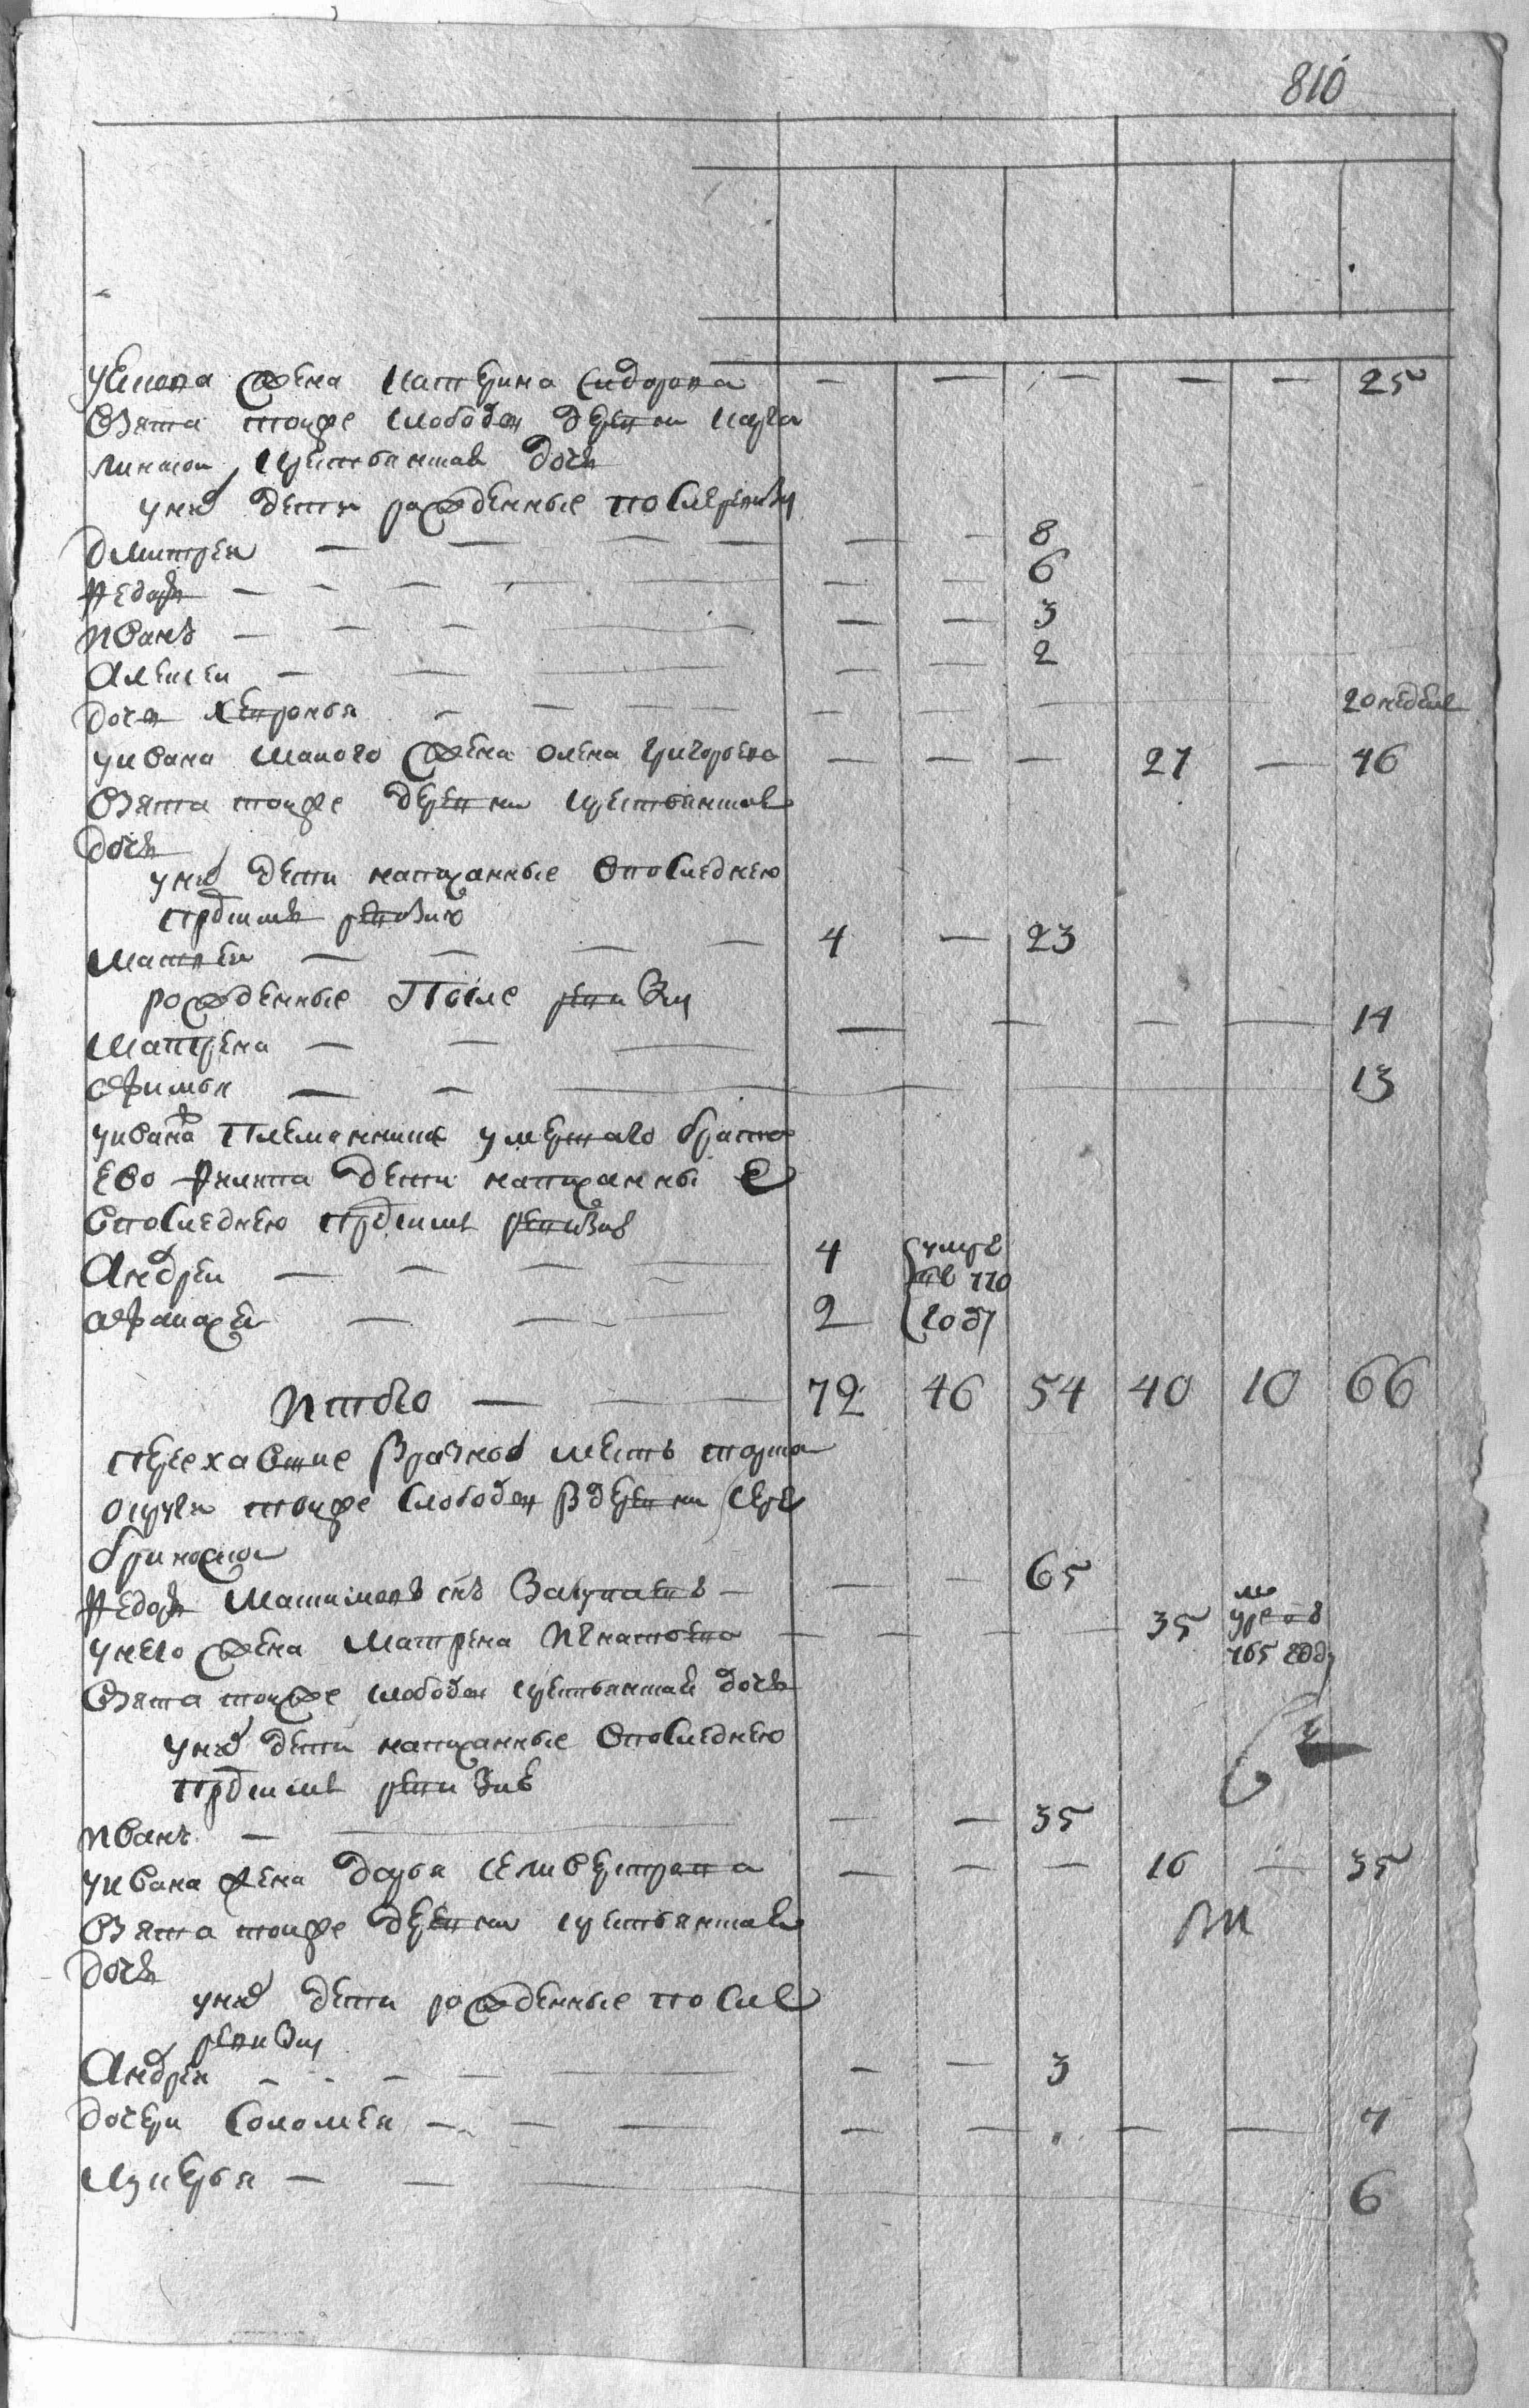 810
жена катерина Сидорова — — — — — 25
взята тоиже слободы деревни
крестьянская дочь
у них дети рожденные после ревизии
Дмитреи — — — — — — 8
Федоръ — — — — — — 6
Иванъ — — — — — 3
Алексеи — — — — — 2
дочь — — — — — 20 недель
у ивана малого жена олена григорьева — — — 21 — 46
взята тоиже деревни крестьянская
дочь
у них дети написанные в последнею
пред сим ревизию
Матвеи — — — — 4 — 23
рожденные После ревизии
Матрена — — — — — — — 14
афимья — — — — 13
у ивана племянники умершаго брата
ево Филипа дети написанные
в последнею пред сим ревизию
Андреи — — — — 4 умре
в 770
2 году
Итого — — — 72 46 54 40 10 66
переехавшие в разных месецъ
тоиже слободы в деревни сере
брянскои
Федоръ снъ — — — 65
у него жена Матрена Игнатова — — — — 35 умре в
765 году
взята тоиже слободы крестьянская дочь
у них дети написанные в последнею
пред сим ревизию
Иванъ — — — — 35
у ивана жена дарья селиверстрова — — — 16 — 35
взята тоиже деревни крестьянская
дочь
у них дети рожденные после
ревизии
Андреи — — — — — — 3
дочери Соломея — — — — — — — — 7
Лукерья — — 6